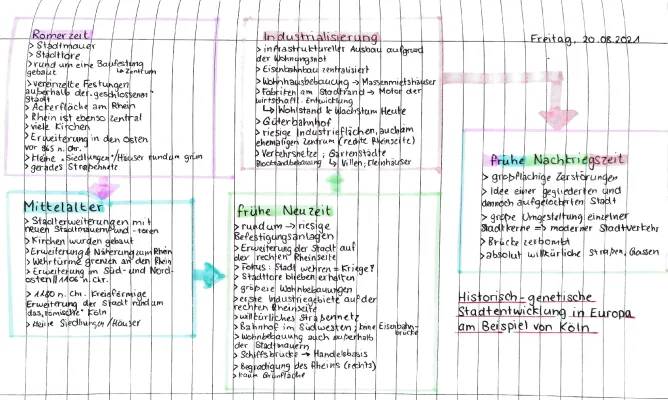 Freitag, 20.08.2021
Römerzeit
> Stadtmauer
> Stadttore
> rund um eine Baufestung
gebaut ↳ Zentrum
> vereinzelte Festungen
außerhalb der "geschlossenen"
Stadt
> Ackerfläche am Rhein
> Rhein ist ebenso zentral
> viele Kirchen
> Erweiterung in den Osten
vor 845 n. Chr.
> kleine "Siedlungen"/Häuser rundum grün
> gerades Straßennetz
Mittelalter
> Stadterweiterungen mit
neuen Stadtmauern und -toren
> Kirchen wurden gebaut
> Erweiterung & Näherung zum Rhein
> Wehrtürme grenzen an den Rhein
> Erweiterung im Süd- und Nord-
osten // 1106 n. chr.
> 1180 n. Chr. Kreisförmige
Erweiterung der Stadt rund um
das "römische" Köln
> kleine Siedlungen/Häuser
frühe Neuzeit
> rundum → riesige
Befestigungsanlagen
> Erweiterung der Stadt auf
der rechten Rheinseite
> Fokus: Stadt wehren = Kriege?
> Stadttore blieben erhalten
> größere Wohnbebauungen
> erste Industriegebiete auf der
rechten Rheinseite
> willkürliches Straßennetz
> Bahnhof im Südwesten; Eisenbahn-
brücke
> Wohnbebauung auch außerhalb
der Stadtmauern
> Schiffsbrücke → Handelsbasis
> Begradigung des Rheins (rechts)
> kaum Grünfläche
Industrialisierung
> infrastruktureller Ausbau aufgrund
der Wohnungsnot
> Eisenbahnbau zentralisiert
> Wohnhausbebauung → Massenmietshäuser
> Fabriken am Stadtrand → Motor der
wirtschaftl. Entwicklung
↳ Wohlstand & Wachstum Heute
> Güterbahnhof
> riesige Industrieflächen, auch am
ehemaligen Zentrum (rechte Rheinseite)
> Verkehrsnetze; Gartenstädte
↳ Villen; Kleinhäuser
frühe Nachkriegszeit
> großflächige Zerstörungen
> Idee einer gegliederten und
dennoch aufgelockerten Stadt
> große Umgestaltung einzelner
Stadtkerne => moderner Stadtverkehr
> Brücke zerbombt
> absolut willkürliche Straßen, Gassen
Historisch-genetische
Stadtentwicklung in Europa
am Beispiel von Köln